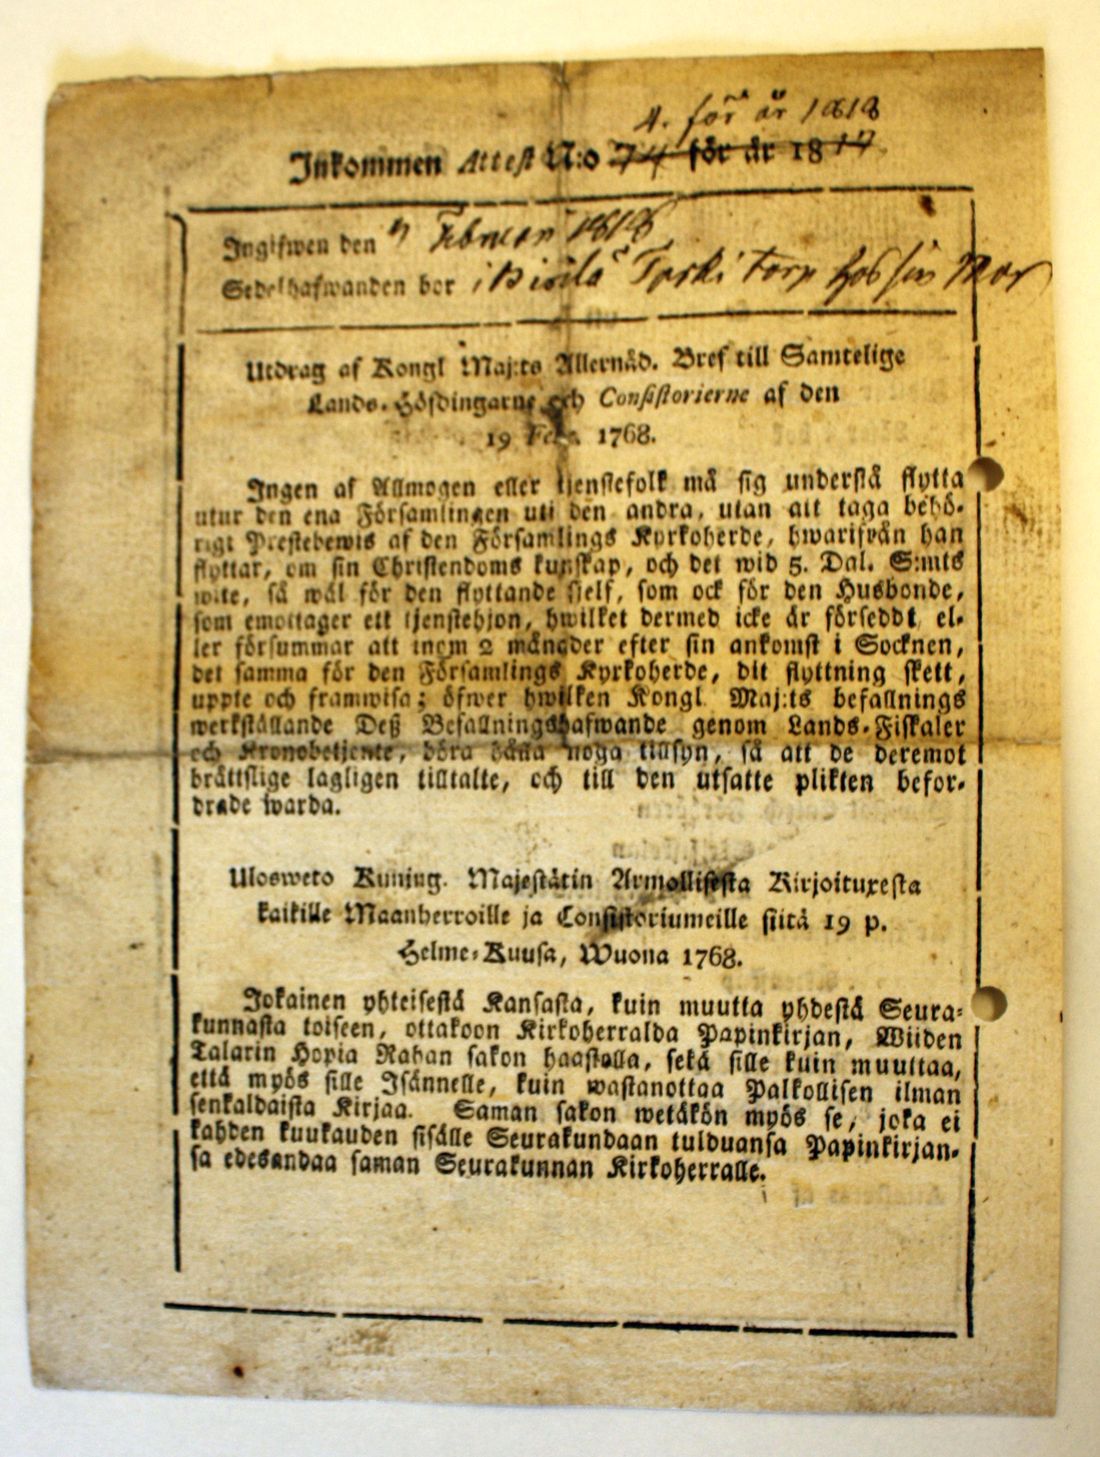 4. för år 1818
Inkommen Attest N:o 74 för år 1817
Ingifwen den 7 Februari 1818
Sedelhafwanden bor i
Utdrag af Kongl Maj:ts Allernåd. Bref till Samtelige
Lands-Höfdingarne och Consistorierne af den
19 Febr. 1768.
Ingen af Allmogen eller tjenstefolk må sig understå flytta
utur den ena Församlingen uti den andra, utan att taga behö-
rigt Prestebewis af den Församlings Kyrkoherde, hwarifrån han
flyttar, om sin Christendoms kunskap, och det wid 5. Dal. S:mts
wite, så wäl för den flyttande sjelf, som ock för den Husbonde,
som emottager ett tjenstehjon, hwilket dermed icke är försedd, el-
ler försummar att inom 2 månader efter sin ankomst i Socknen,
det samma för den Församlings Kyrkoherde, dit flyttning skett,
uppte och framwisa; öfwer hwilken Kongl Maj:ts befallnings
werkställande Deß Befallningshafwande genom Lands-Fiskaler
och Kronobetjente, böra hålla noga tillsyn, så att de deremot
bråttslige lagligen tilltalte, och till den utsatte plikten befor-
drade warda.
Ulosweto Kuning. Majestätin Armollisesta Kirjoituxesta
kaikille Maanherroille ja Consistoriumeille siitä 19 p.
Helme-Kuusa, Wuona 1768.
Jokainen yhteisestä Kansasta, kuin muutta yhdestä Seura-
kunnasta toiseen, ottakoon Kirkoherralda Papinkirjan, Wiiden
Talarin Hopia Rahan sakon haastolla, sekä sille kuin muuttaa,
että myös sille Isännelle, kuin wastanottaa Palkollisen ilman
senkaldaista Kirjaa. Saman sakon wetäkön myös se, joka ei
kahden kuukauden sisälle Seurakundaan tulduansa Papinkirjan-
sa edesandaa saman Seurakunnan Kirkoherralle.